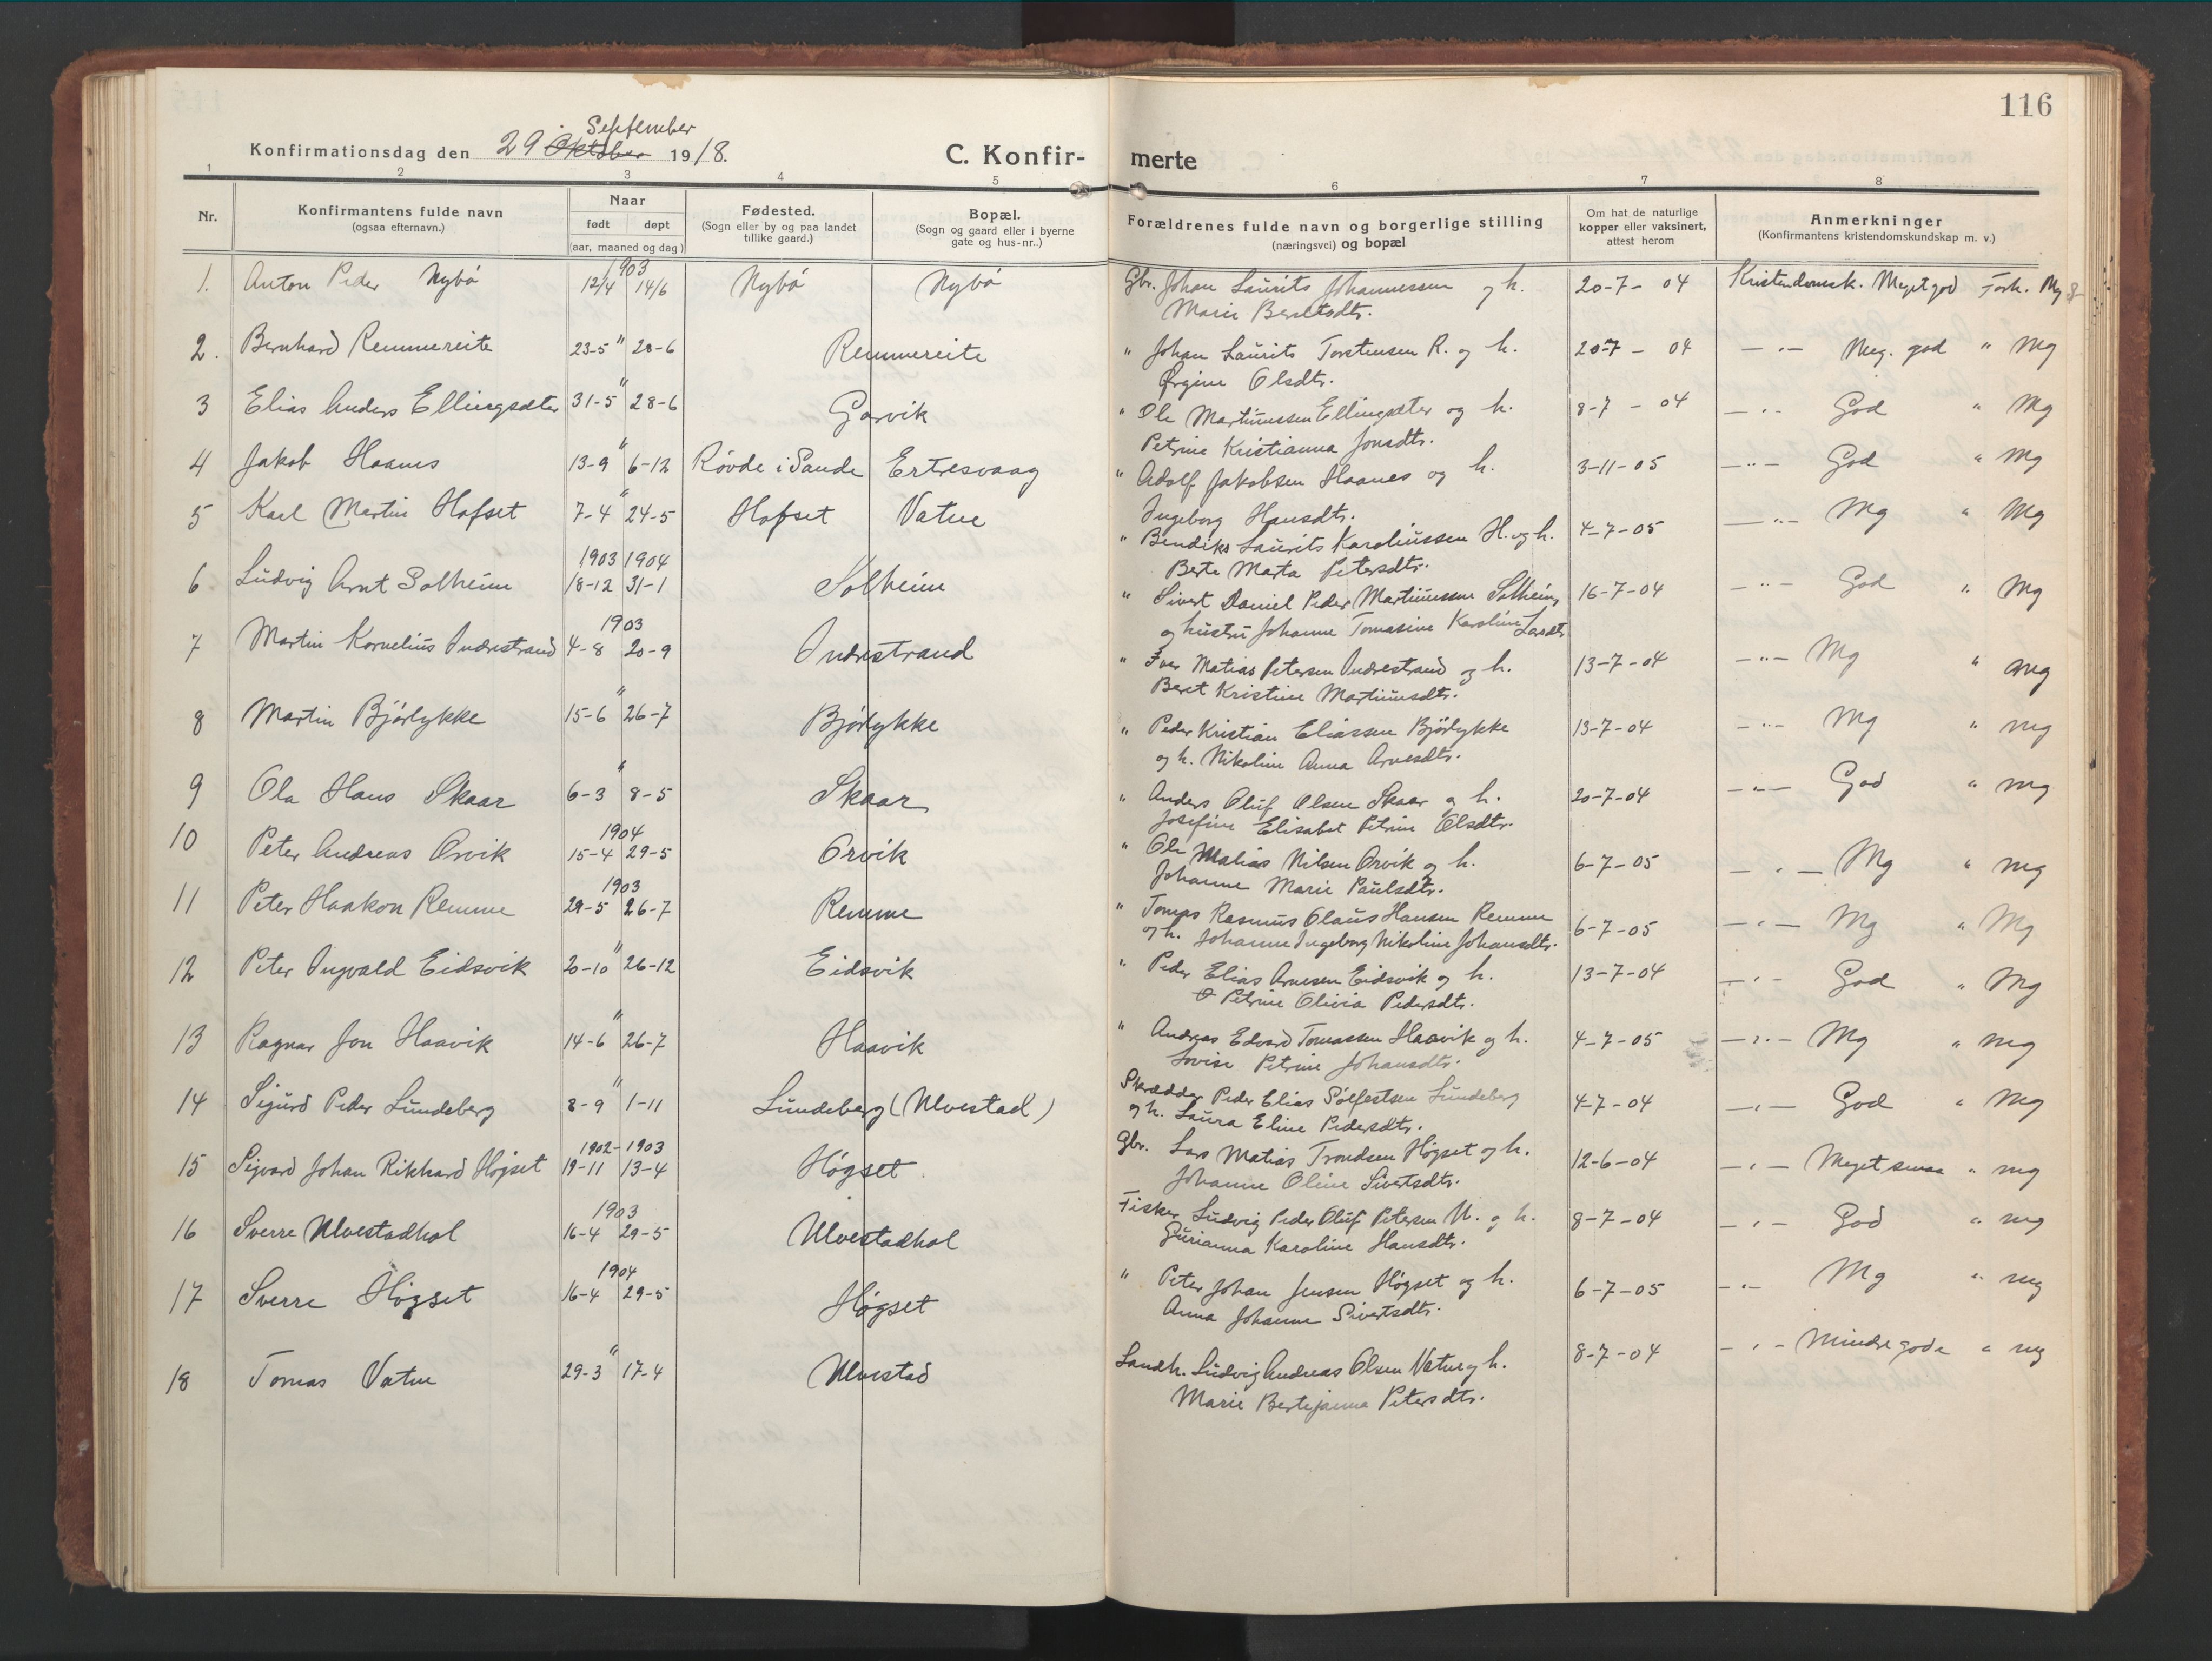 116
September
Konfirmationsdag den 29 Oktober 1918.
C. Konfir- merte
1 2 3 4 5 6 7 8
Nr.
Konfirmantens fulde navn
(ogsaa efternavn.)
Naar
født døpt
(aar, maaned og dag)
Fødested.
(Sogn eller by og paa landet
tillike gaard.)
Bopæl.
(Sogn og gaard eller i byerne
gate og hus-nr..)
Forældrenes fulde navn og borgerlige stilling
(næringsvei) og bopæl
Om hat de naturlige
kopper eller vaksinert,
attest herom
Anmerkninger
(Konfirmantens kristendomskundskap m. v.)
1903
1. Anton Peder Nybö 12/4 14/6 Nybö Nybö Gbr. Johan Laurits Johannessen og h. 20-7-04 Kristendomsk. Meget god Forh. Mg
Marie Berntsdtr.
2. Bernhard Remmereite 23-5 " 28-6 Remmereite " Johan Laurits Torstensen R. og h. 20-7-04 -"- Meg. god " Mg
Ørgine Olsdtr.
3 Elias Anders Ellingsæter 31-5 " 28-6 Garvik " Ole Martinussen Ellingsæter og h. 8-7-04 -"- God " Mg
Petrine Kristianna Jonsdtr.
4 Jakob Haanes 13-9 " 6-12 Rövde i Sande Ertresvaag " Adolf Jakobsen Haanes og h. 3-11-05 -"- God " Mg
Ingeborg Hansdtr.
5 Karl Martin Hofset 7-4 " 24-5 Hofset Vatne " Bendiks Laurits Karoliussen H. og h. 4-7-05 -"- Mg " Mg
Berte Marta Petersdtr.
1903 1904
6 Ludvig Arnt Solheim 18-12 31-1 Solheim " Sivert Daniel Peder Martinussen Solheim 16-7-04 -"- God " Mg
og hustru Johanne Tomasine Karoline Larsdtr
1903
7 Martin Kornelius Indrestrand 4-8 20-9 Indrestrand " Iver Matias Petersen Indrestrand og h. 13-7-04 -"- Mg " mg
Beret Kristine Martinusdtr.
8 Martin Bjørlykke 15-6 " 26-7 Bjørlykke " Peder Kristian Eliassen Bjørlykke 13-7-04 -"- Mg " mg
og h. Nikoline Anna Arnesdtr.
9 Ola Hans Skaar 6-3 " 8-5 Skaar " Anders Oluf Olsen Skaar og h. 20-7-04 -"- God " mg
Josefine Elisabet Petrine Olsdtr.
1904
10 Peter Andreas Orvik 15-4 29-5 Orvik " Ole Matias Nilsen Orvik og h. 6-7-05 -"- Mg " mg
Johanne Marie Paulsdtr.
1903
11 Peter Haakon Remme 29-5 26-7 Remme " Tomas Rasmus Olaus Hansen Remme 6-7-05 -"- Mg " Mg
og h. Johanne Ingeborg Nikoline Johansdtr.
12 Peter Ingvald Eidsvik 20-10 " 26-12 Eidsvik " Peder Elias Arnesen Eidsvik og h. 13-7-04 -"- God " Mg
Petrine Olivia Pedersdtr.
13 Ragnar Jon Haavik 14-6 " 26-7 Haavik " Andreas Edvard Tomassen Haavik og h. 4-7-05 -"- Mg " mg
Lovise Petrine Johansdtr.
14 Sigurd Peder Lundeberg 8-9 " 1-11 Lundeberg (Ulvestad) Skrædder Peder Elias Sølfestsen Lundeberg 4-7-04 -"- God " Mg
og h. Laura Eline Pedersdtr.
1902-1903
15 Sigvard Johan Rikhard Högset 19-11 13-4 Högset Gbr. Lars Matias Trondsen Högset og h. 12-6-04 -"- Meget smaa " mg
Johanne Oline Sivertsdtr.
1903
16 Sverre Ulvestadhol 16-4 29-5 Ulvestadhol Fisker Ludvig Peder Oluf Petersen U. og h. 8-7-04 -"- God " mg
Gurianna Karoline Hansdtr.
1904
17 Sverre Högset 16-4 29-5 Högset " Peter Johan Jensen Högset og h. 6-7-05 -"- Mg " mg
Anna Johanne Sivertsdtr.
18 Tomas Vatne 29-3 " 17-4 Ulvestad Landh. Ludvig Andreas Olsen Vatne og h. 8-7-04 -"- Mindre gode " mg
Marie Bertejanna Petersdtr.